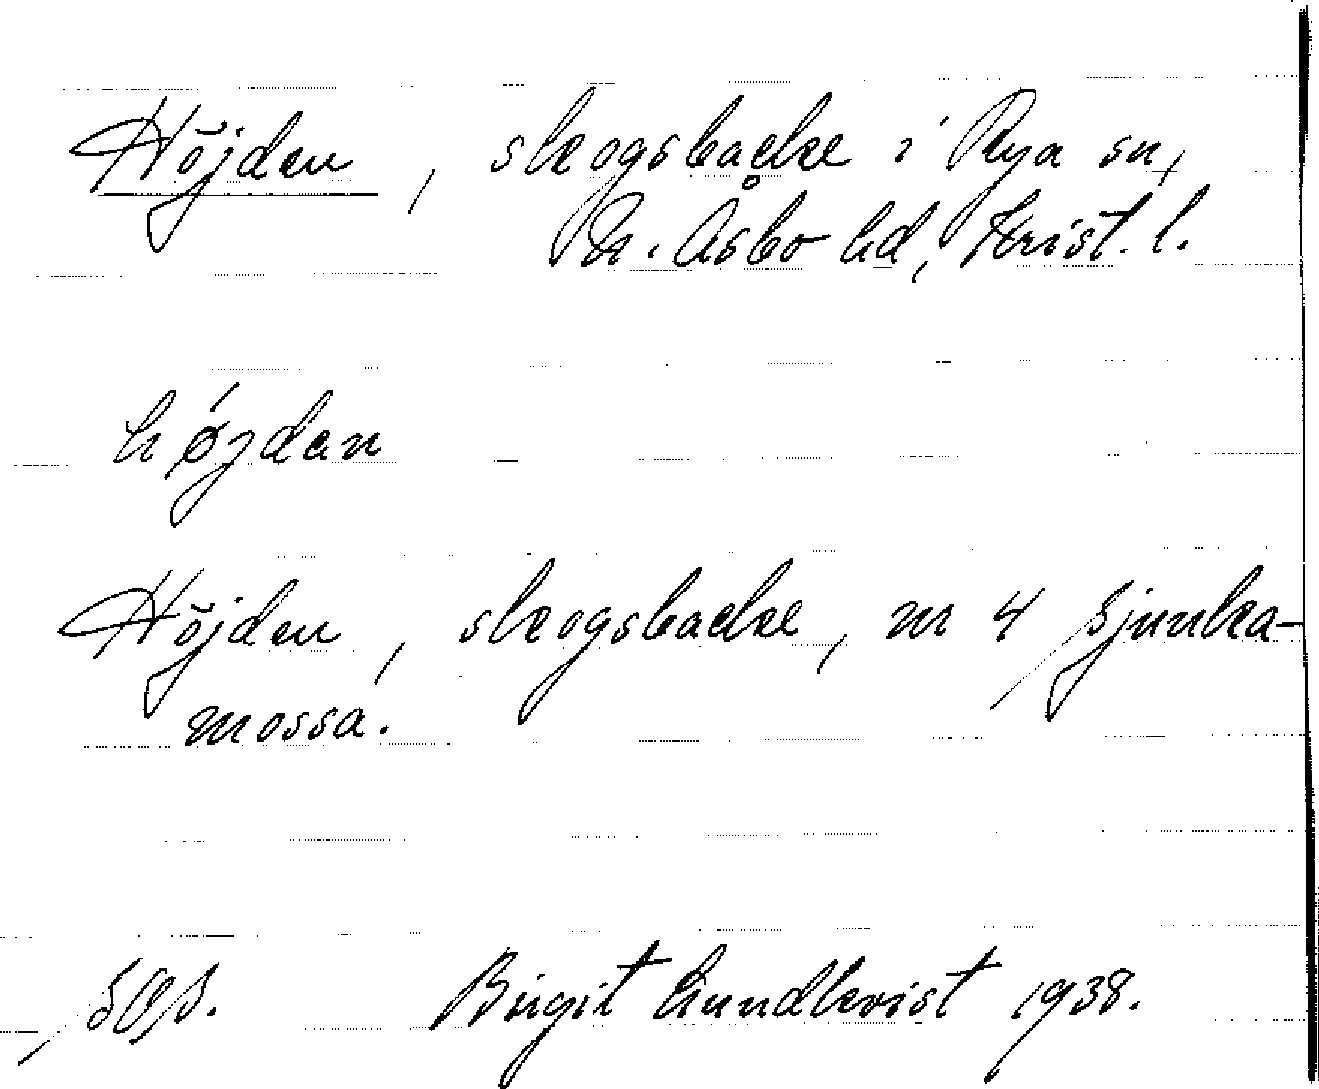 Höjden, skogsbacke i Rya sn,
N. Åsbo hd, Krist. l.
hǿjdan
Höjden, skogsbacke, nr 4 Sjunka-
mossa.
Birgit Lundkvist 1938.